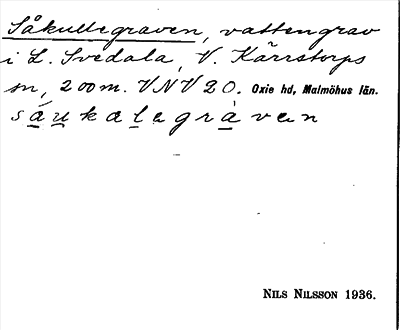 Såkullegraven, vattengrav
i L. Svedala, V. Kärrstorps
sn, 200 m. VNV 20. Oxie hd, Malmöhus län.
såukalagràven
NILS NILSSON 1936.